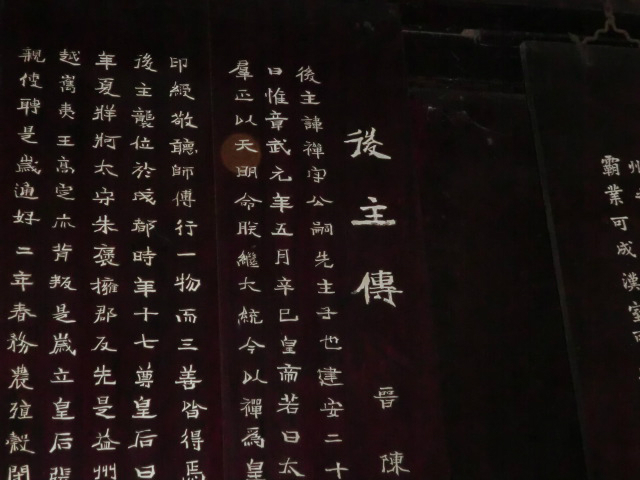 霸業可成漢室可
後主傳 晉陳
後主諱禪字公嗣先主子也建安二十
曰惟章武元年五月辛巳皇帝若曰太
羣正以天明命朕繼大統今以禪為皇
印綬敬聽師傅行一物而三善皆得焉
後主襲位於成都時年十七尊皇后曰
年夏牂牁太守朱褒擁郡反先是益州
越嶲夷王高定亦背叛是歲立皇后張
親使聘是歲通好二年春務農殖穀閉